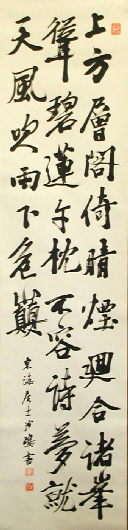 上方層閣倚晴煙廻合諸峯
聳碧蓮午枕不容詩夢就
天風吹雨下危巔
東海居士
書